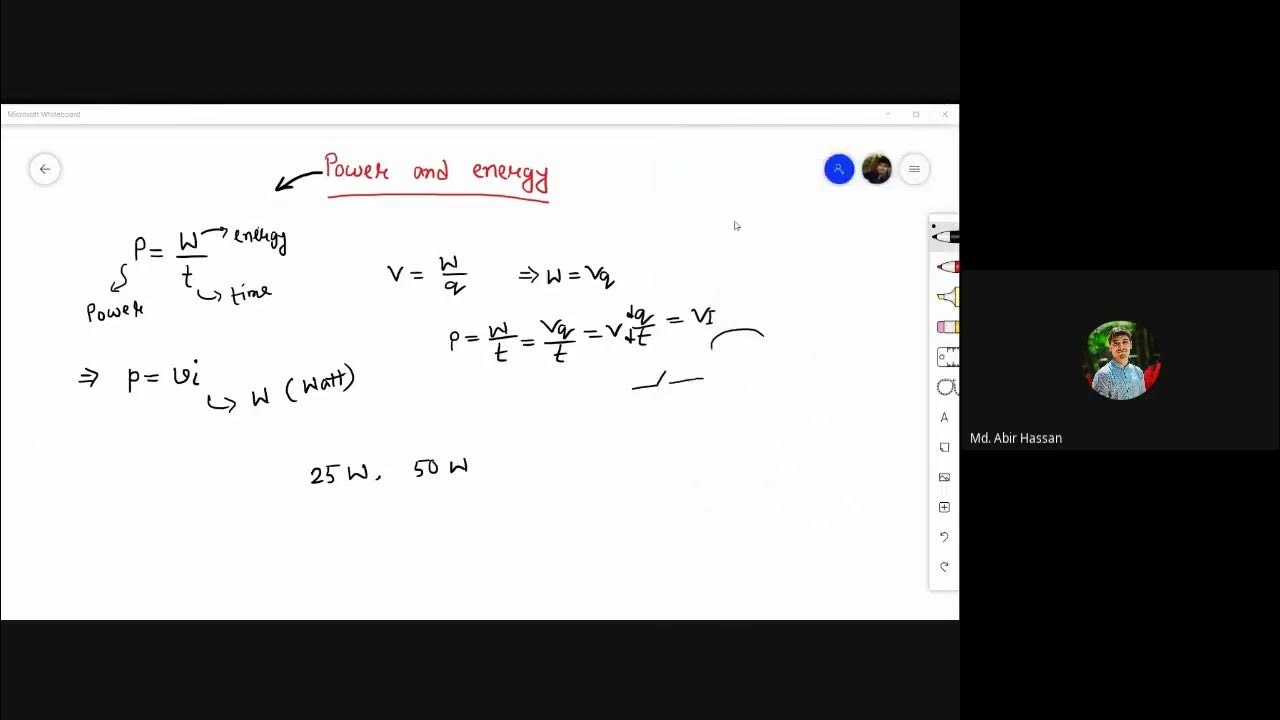 Microsoft Whiteboard
Power and energy
P = W/t
energy
time
Power
V = W/q ⇒ W = Vq
P = W/t = Vq/t = V dq/dt = VI
⇒ p = vi
W (Watt)
25 W, 50 W
A
Md. Abir Hassan